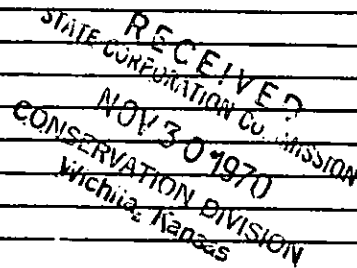 RECEIVED
STATE CORPORATION COMMISSION
NOV 30 1970
CONSERVATION DIVISION
Wichita, Kansas